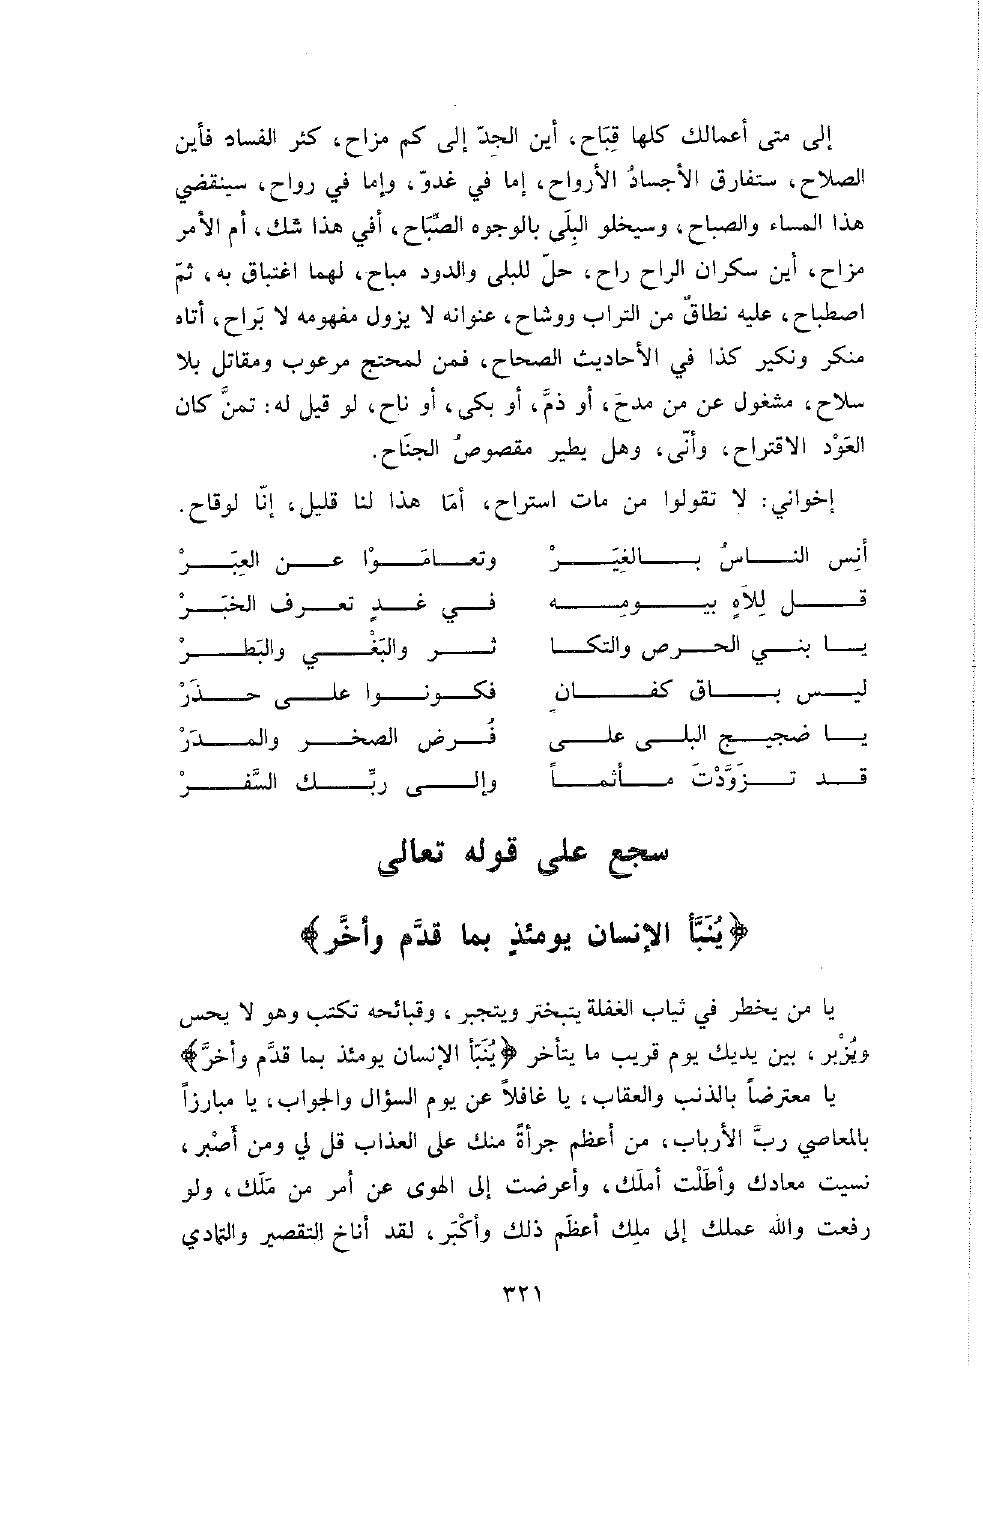 إلى متى أعمالك كلها قِبَاح، أين الجِدّ إلى كم مزاح، كثر الفساد فأين
الصلاح، ستفارق الأجسادُ الأرواح، إما في غدوّ، وإما في رواح، سينقضي
هذا المساء والصباح، وسيخلو البِلَى بالوجوه الصِّبَاح، أفي هذا شك، أم الأمر
مزاح، أين سكران الراح راح، حلّ للبلى والدود مباح، لهما اغتباق به، ثمّ
اصطباح، عليه نطاقٌ من التراب ووشاح، عنوانه لا يزول مفهومه لا بَراح، أتاه
منكر ونكير كذا في الأحاديث الصحاح، فمن لمحتج مرعوب ومقاتل بلا
سلاح، مشغول عن من مدحَ، أو ذمَّ، أو بكى، أو ناح، لو قيل له: تمنَّ كان
العَوْد الاقتراح، وأنّى، وهل يطير مقصوصُ الجنَاح.
إخواني: لا تقولوا من مات استراح، أمَا هذا لنا قليل، إنّا لوقاح.
أنِس الناسُ بالغِيَرْ وتعامَوْا عن العِبَرْ
قل لِلَاهٍ بيومِه في غدٍ تعرف الخبَرْ
يا بني الحرص والتكا ثر والبَغْي والبَطرْ
ليس باق كفانِ فكونوا على حذَرْ
يا ضجيج البلى على فُرض الصخر والمدَرْ
قد تزَوَّدْتَ مأثماً وإلى ربِّك السَّفرْ
سجع على قوله تعالى
﴿يُنَبَّأ الإنسان يومئذٍ بما قدَّم وأخَّر﴾
يا من يخطر في ثياب الغفلة يتبختر ويتجبر، وقبائحه تكتب وهو لا يحس
ويُزْبر، بين يديك يوم قريب ما يتأخر ﴿يُنَبّأ الإنسان يومئذ بما قدَّم وأخرَّ﴾
يا معترضاً بالذنب والعقاب، يا غافلاً عن يوم السؤال والجواب، يا مبارزاً
بالمعاصي ربَّ الأرباب، من أعظم جرأةً منك على العذاب قل لي ومن أَصْبر،
نسيت معادك وأطَلْت أملَك، وأعرضت إلى الهوى عن أمر من مَلَك، ولو
رفعت والله عملك إلى ملِك أعظَم ذلك وأكْبَر، لقد أناخ التقصير والتمادي
٣٢١